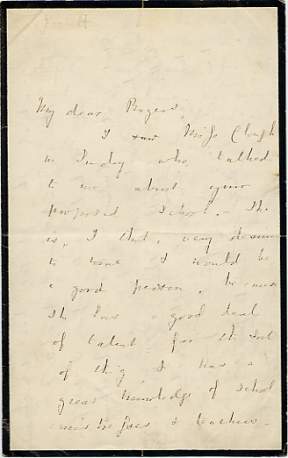 My dear Rogers,
I saw Miss Clough
on Sunday who talked
to me about your
proposed School. She
is, I think, very
to & would be
a good person, because
she has a good deal
of talent for that sort
of thing, & has a
great knowledge of School
& teachers.